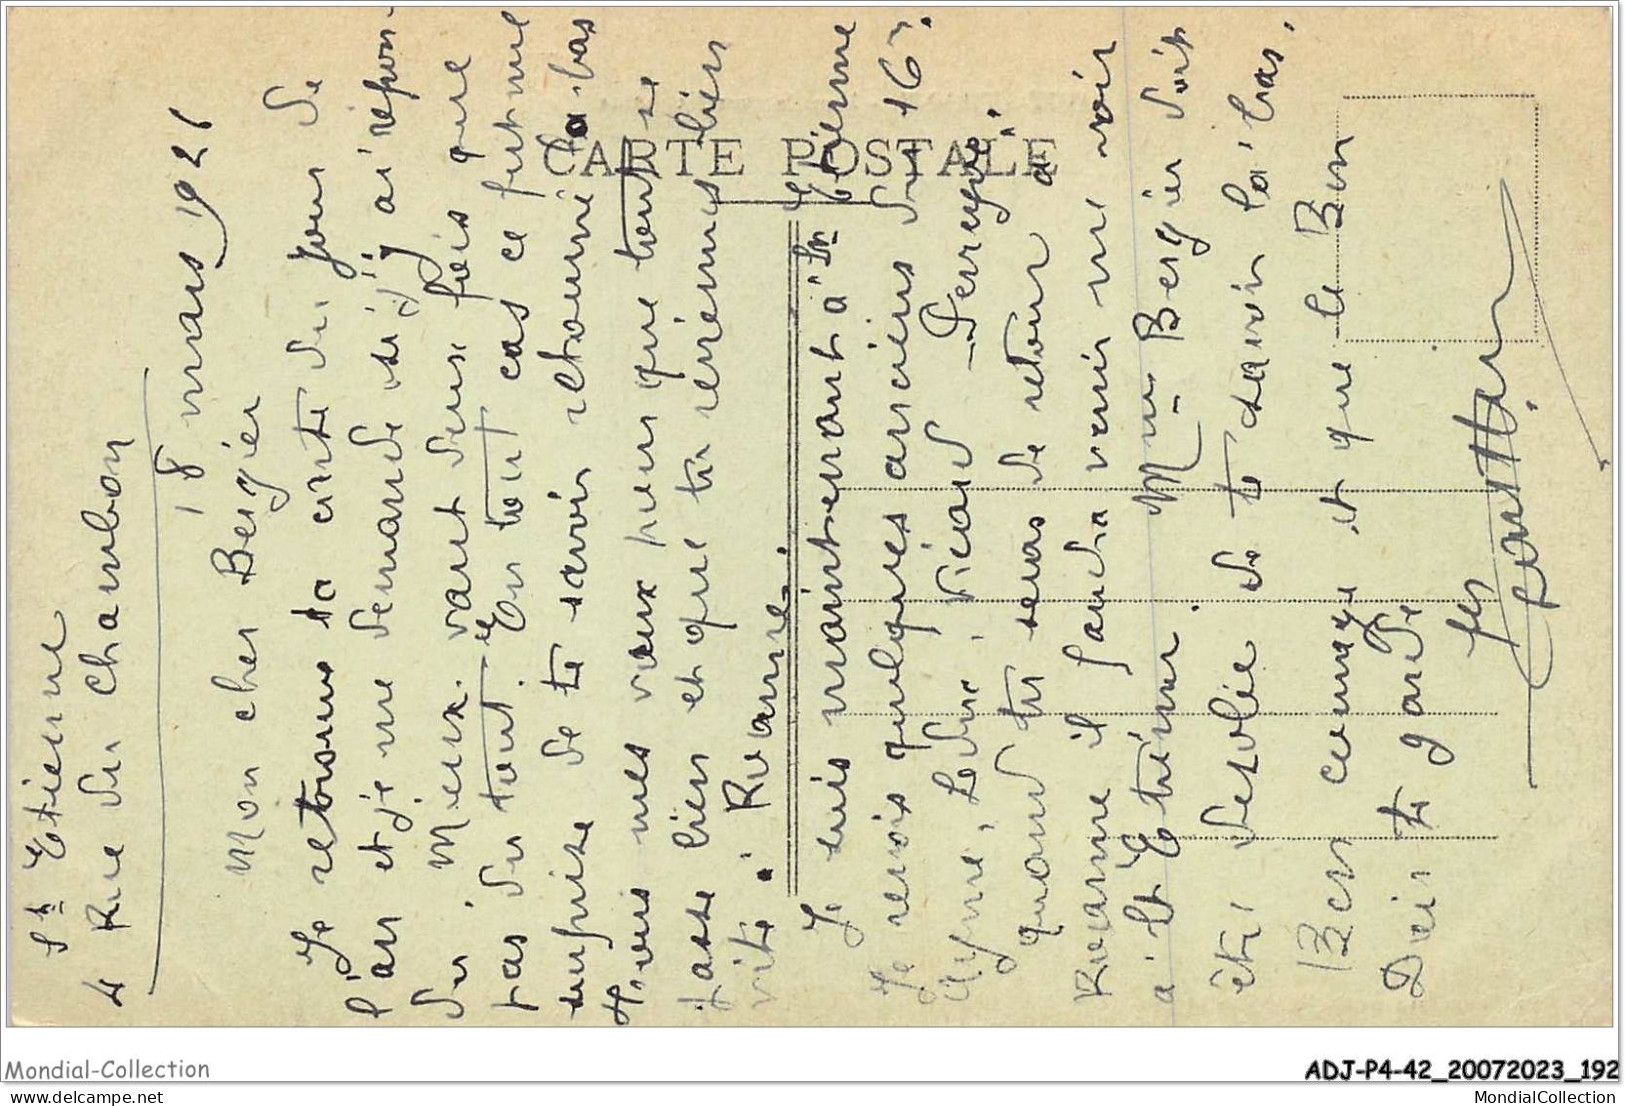 St Etienne
4 Rue du Chambon
18 mars 1921
Mon cher Bergier
Je retrouve ta carte du jour de
l'an et je me demande si j'y ai répon-
du. Mieux vaut deux fois que
pas du tout. En tout cas ce fut une
surprise de te savoir retourné là-bas
Tous mes vœux pour que tout se
passe bien et que tu reviennes bien
vite à Roanne.
Je suis maintenant à St Etienne
Je revois quelques anciens du 16e
Ayme, Leduc, Picard Perreyve.
quand tu seras de retour à
Roanne il faudra venir me voir
à St Etienne. Mme Bergier doit
être désolée de te savoir là-bas.
Bon courage et que le Bon
Dieu te garde
CARTE POSTALE
Mondial-Collection
ADJ-P4-42_20072023_192
www.delcampe.net
MondialCollection